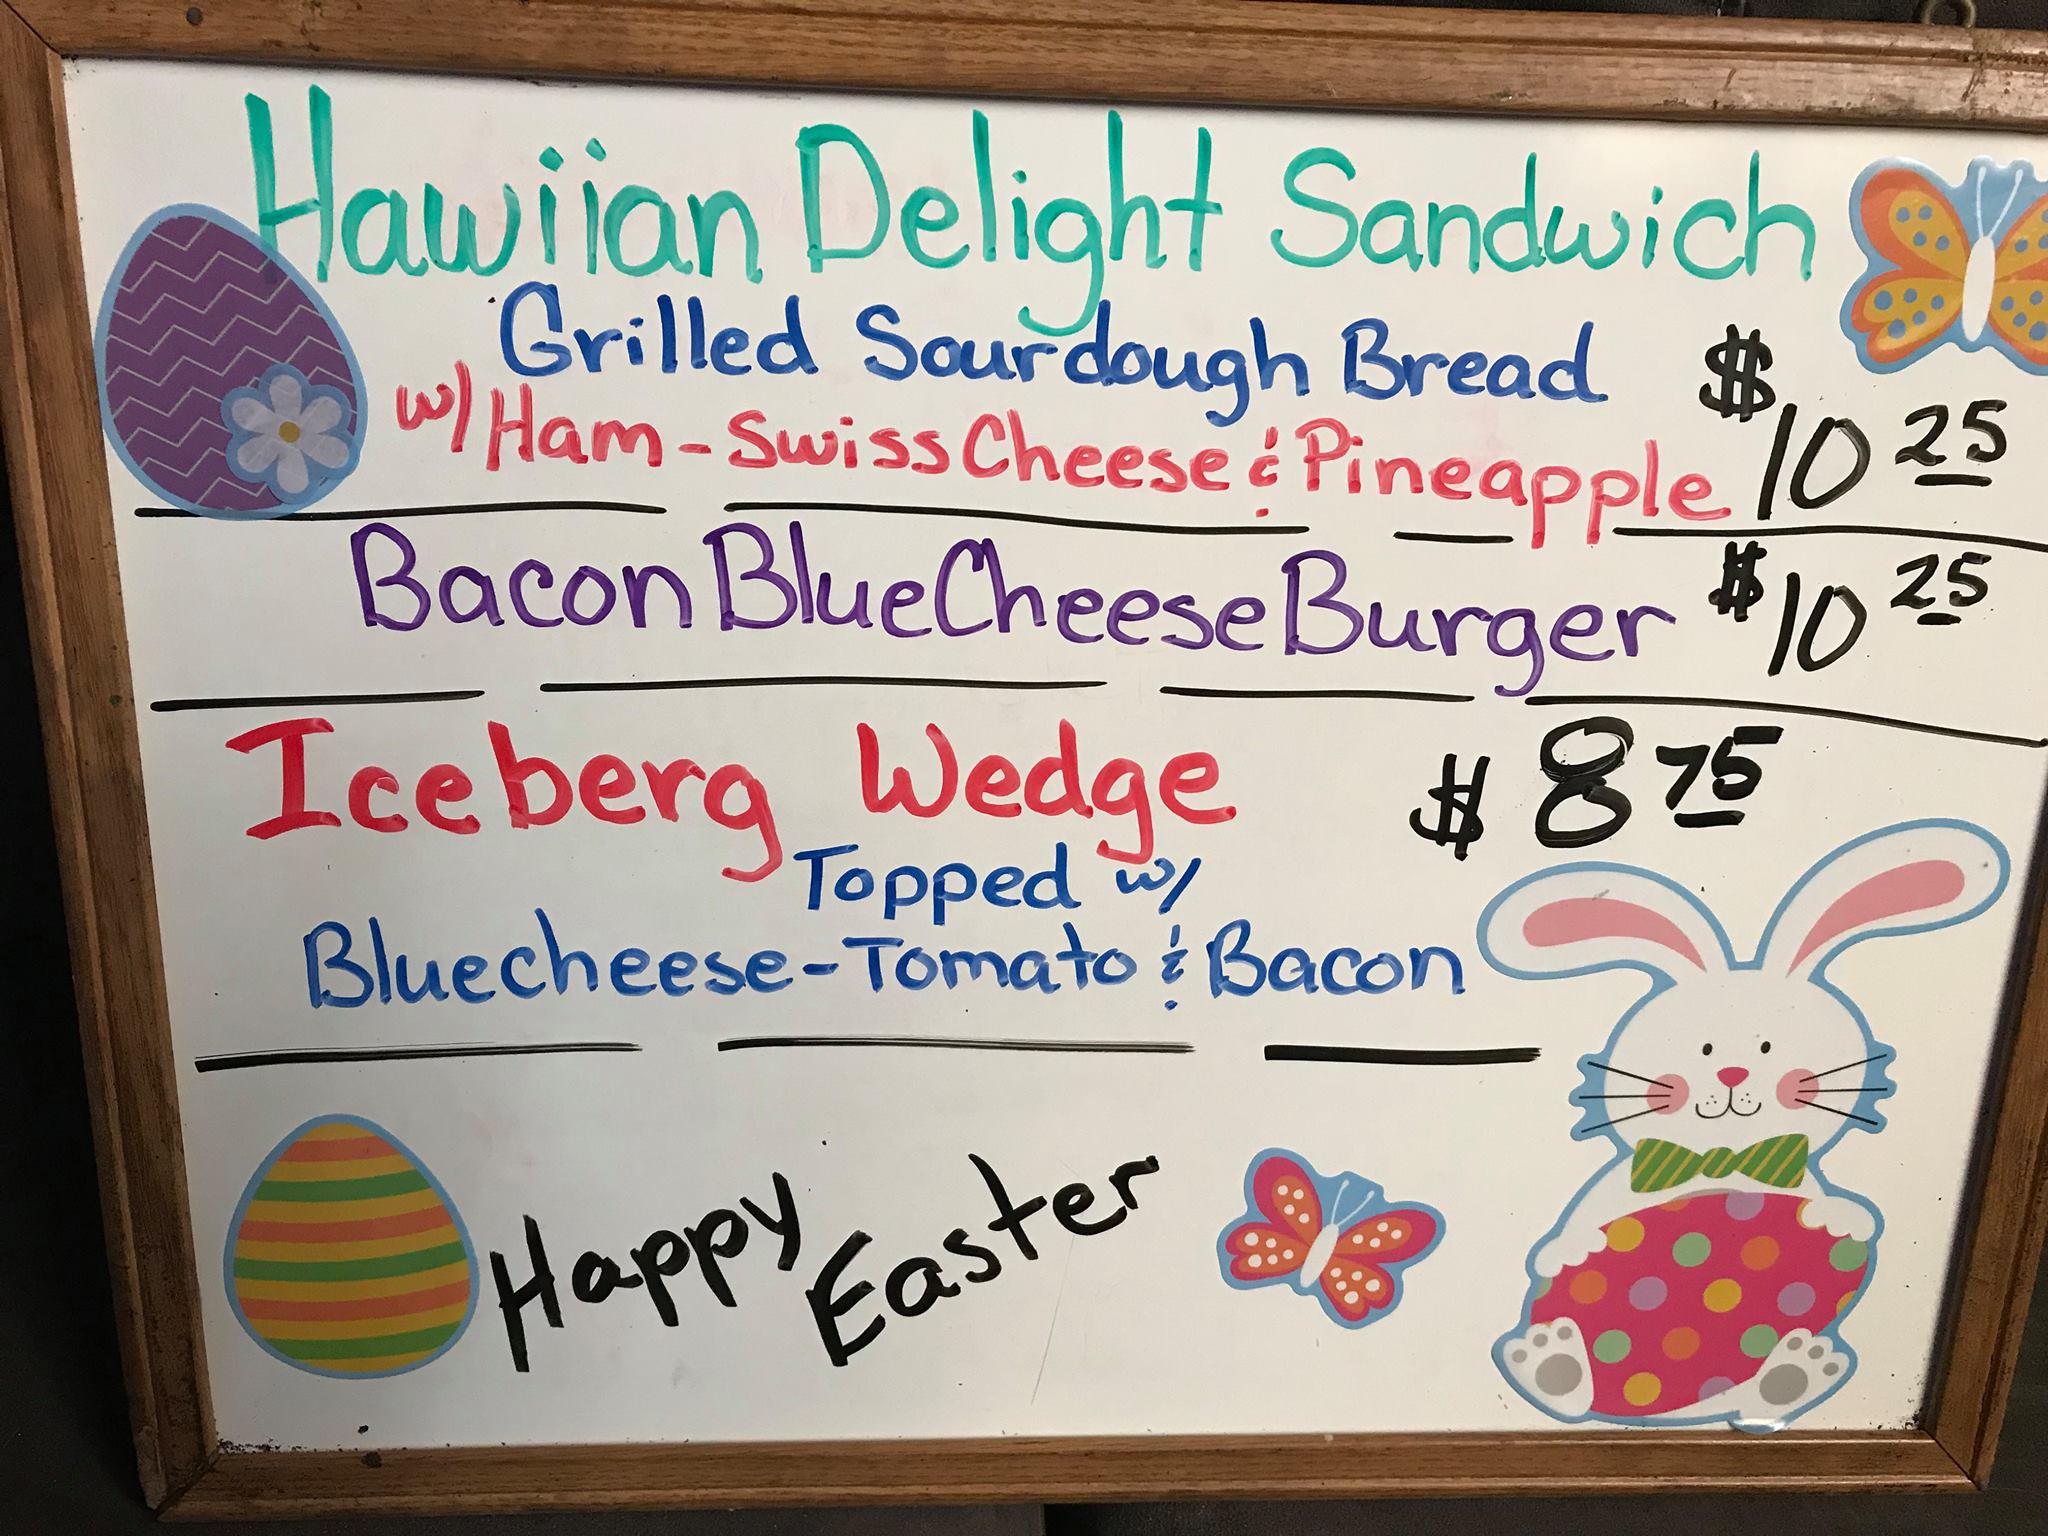 Hawiian Delight Sandwich
Grilled Sourdough Bread
w/ Ham - Swiss Cheese & Pineapple $10 25
Bacon Blue Cheese Burger $10 25
Iceberg Wedge $8 75
Topped w/
Bluecheese - Tomato & Bacon
Happy Easter